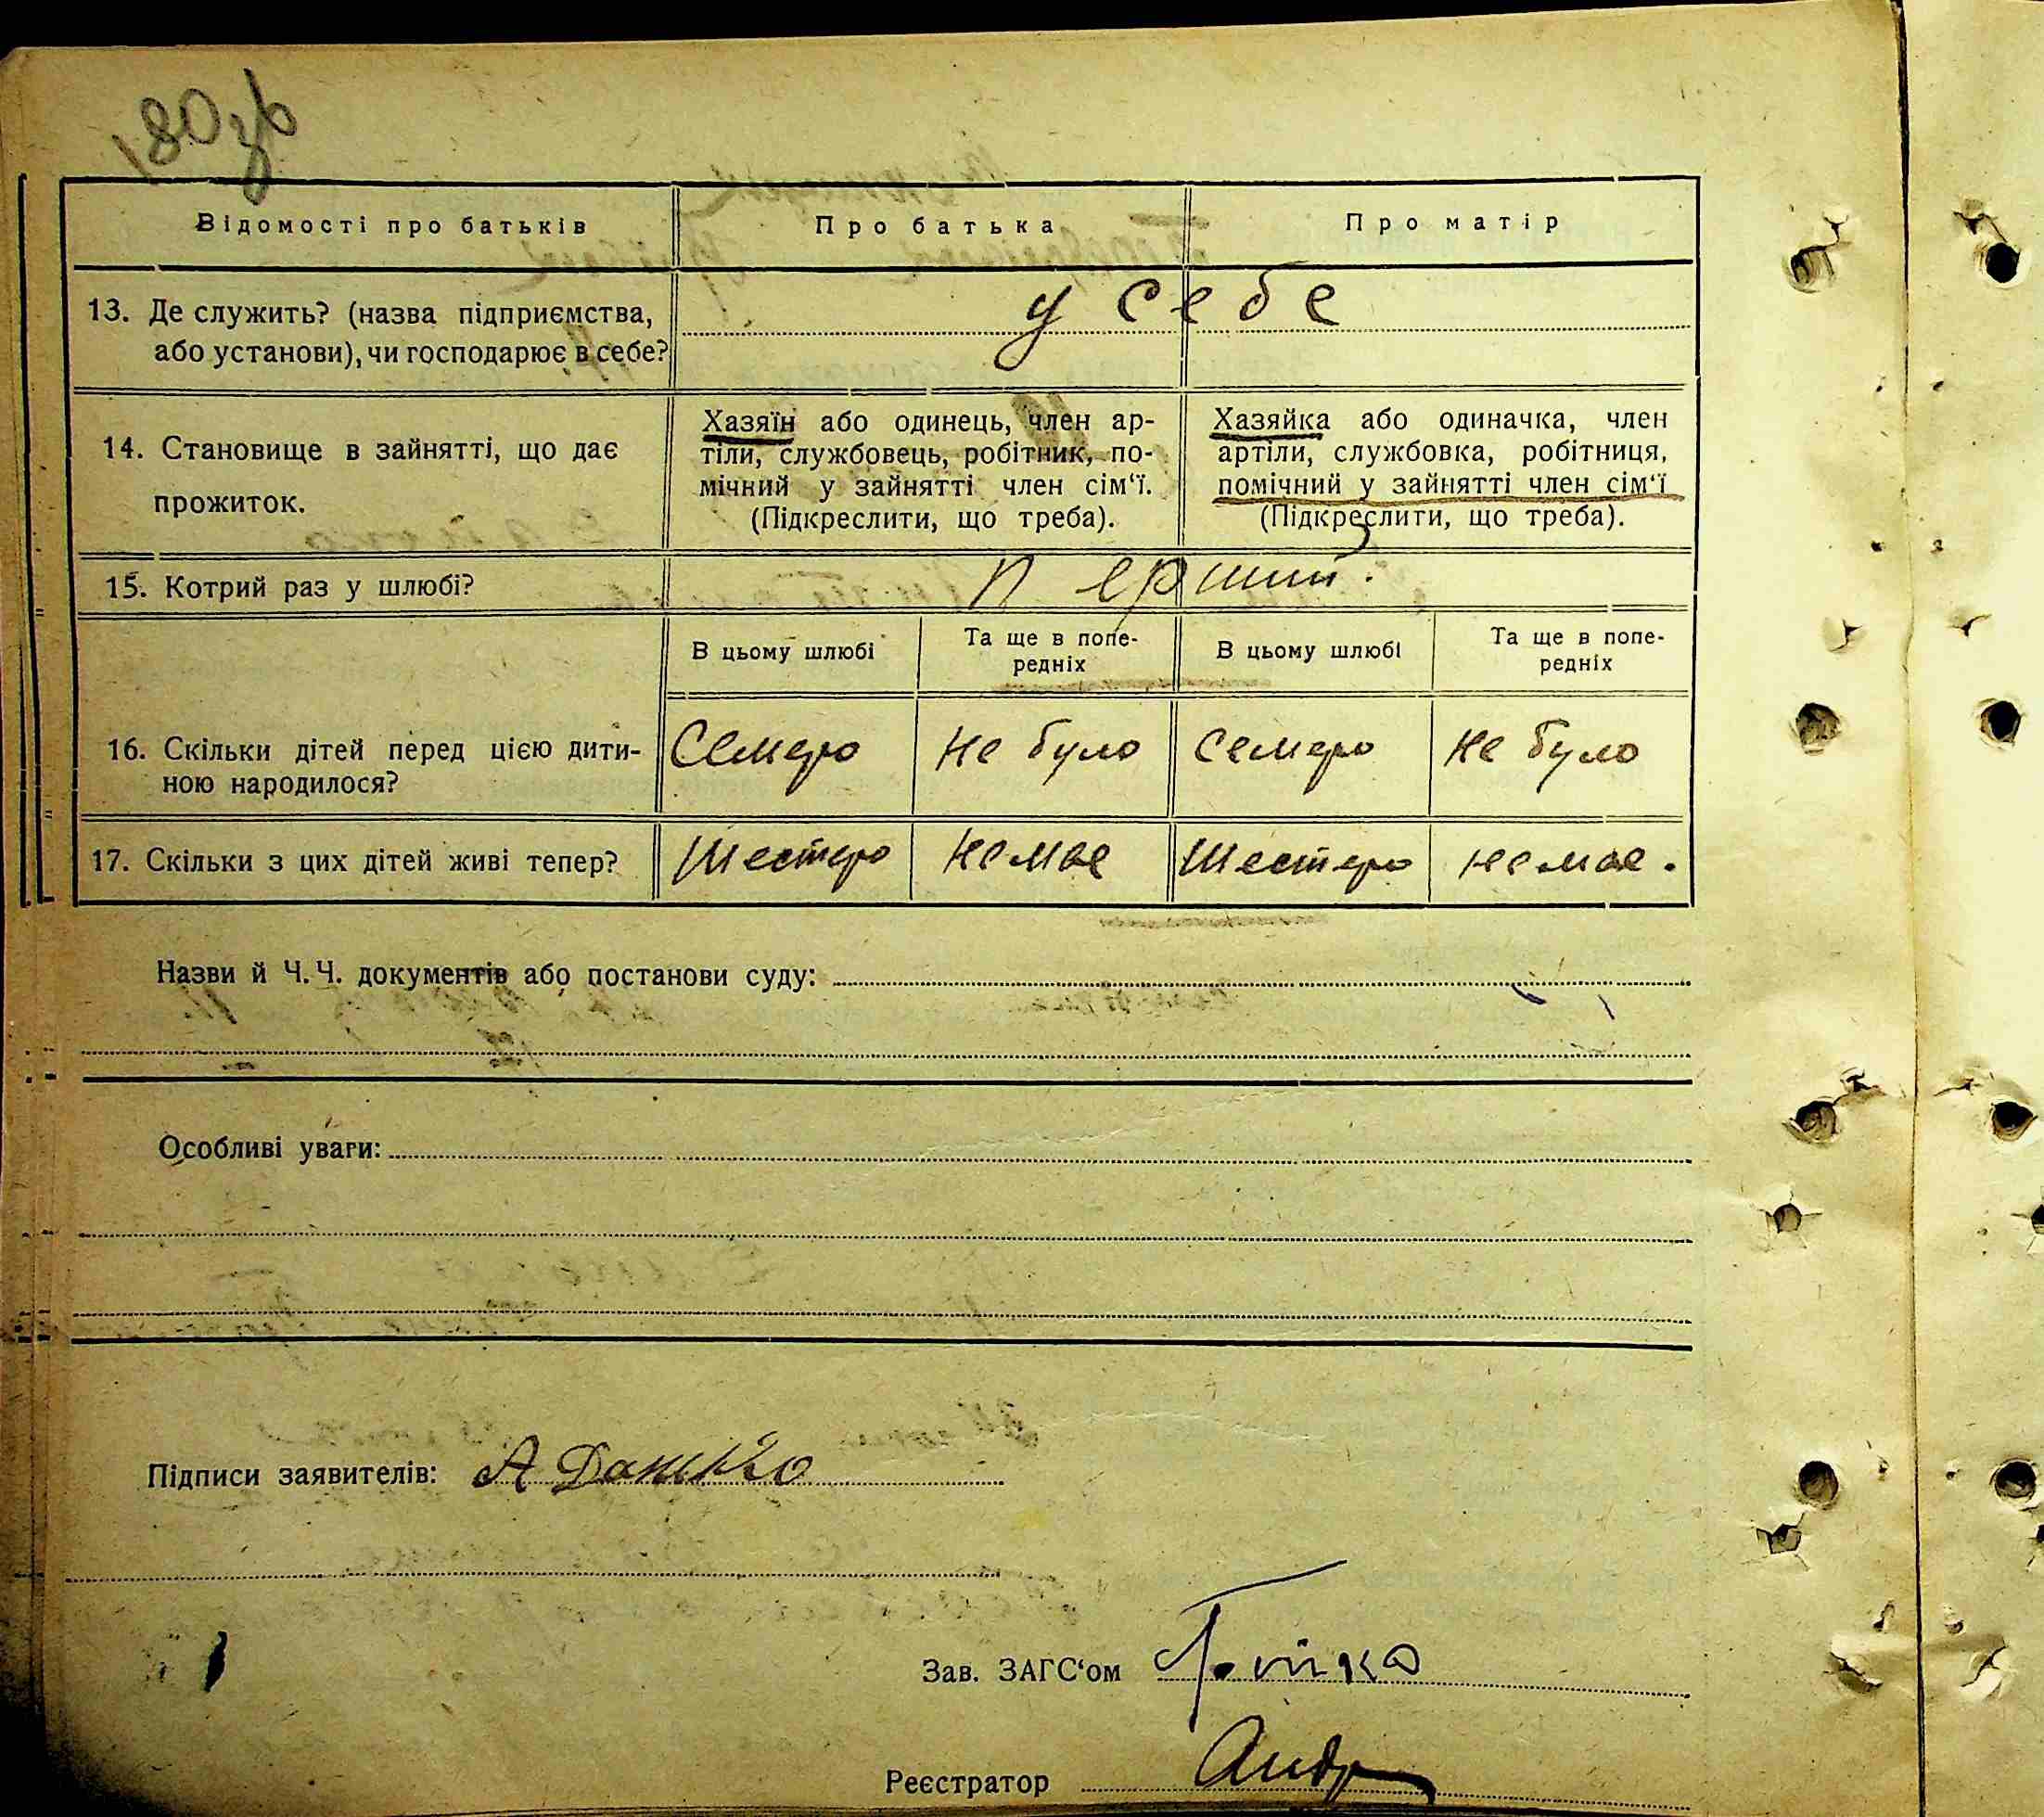 180 зв
Відомості про батьків Про батька Про матір
13. Де служить? (назва підприємства, або установи), чи господарює в себе?
у себе
14. Становище в зайнятті, що дає прожиток.
Хазяїн або одинець, член ар-
тіли, службовець, робітник, по-
мічний у зайнятті член сім‘ї.
(Підкреслити, що треба).
Хазяйка або одиначка, член
артіли, службовка, робітниця,
помічний у зайнятті член сім‘ї
(Підкреслити, що треба).
15. Котрий раз у шлюбі? перший.
В цьому шлюбі
Та ще в попе-
редніх
В цьому шлюбі
Та ще в попе-
редніх
16. Скільки дітей перед цією дити-
ною народилося?
Семеро Не було Семеро Не було
17. Скільки з цих дітей живі тепер? Шестеро немає Шестеро немає.
Назви й Ч.Ч. документів або постанови суду:
Особливі уваги:
Підписи заявителів: А
Зав. ЗАГС‘ом Бойко
Реєстратор